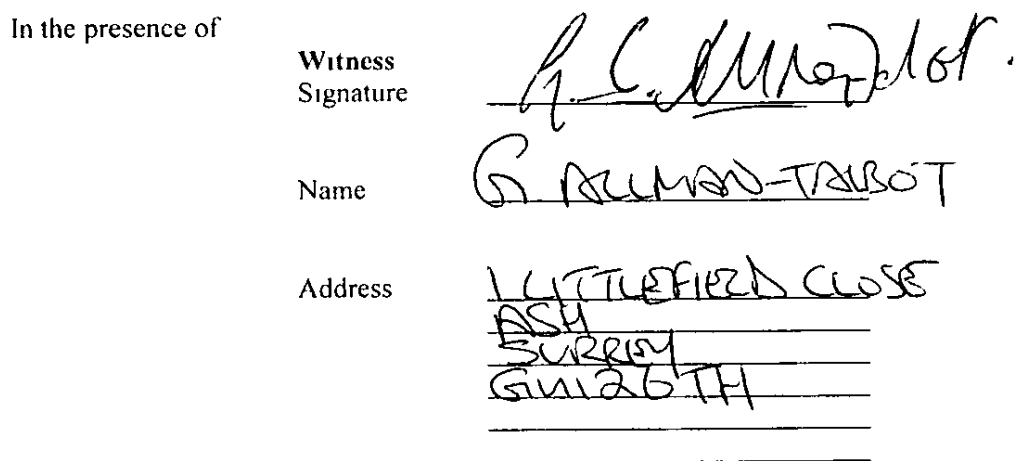 In the presence of
Witness
Signature
Name G. ALLMAN-TALBOT
Address 1 LITTLEFIELD CLOSE
ASH
SURREY
GU12 6TH